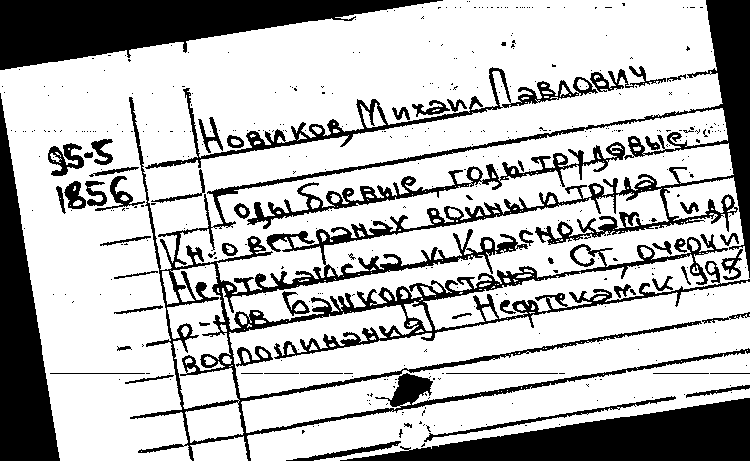 Новиков, Михаил Павлович
95-5
1856
Годы боевые, годы трудовые:
Кн. о ветеранах войны и труда г.
Нефтекамска и Краснокам. [и др.
р-нов Башкортостана: Ст., очерки
воспоминания] – Нефтекамск, 1995